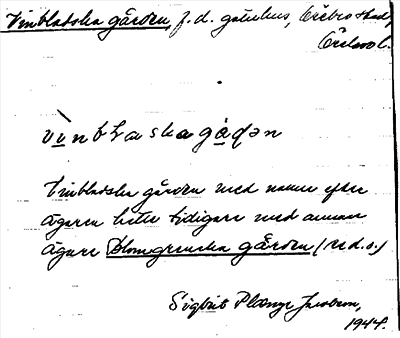 Vinbladska gården, f.d. gatuhus, Örebro stad,
Örebro l.
vinbLaskagåḍən
Vinbladska gården med namn efter
ägaren hette tidigare med annan
ägare Blomgrenska gården (se d.o.)
Sigbrit Plænge Jacobson,
1944.